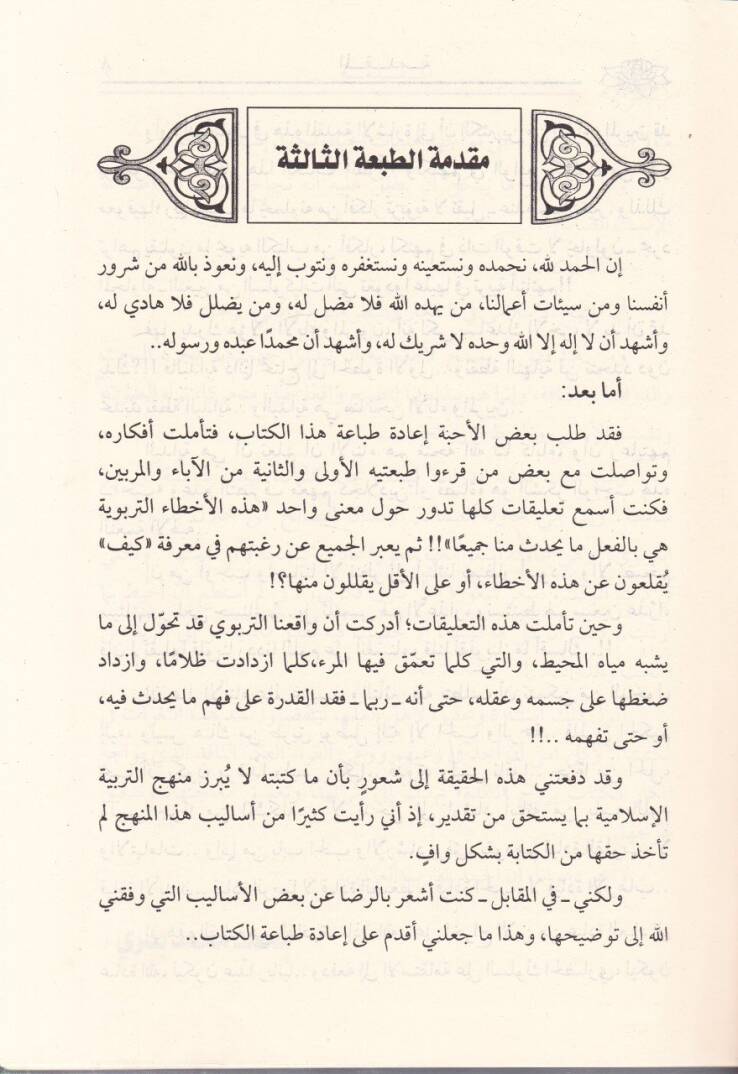 مقدمة الطبعة الثالثة
إن الحمد لله، نحمده ونستعينه ونستغفره ونتوب إليه، ونعوذ بالله من شرور
أنفسنا ومن سيئات أعمالنا، من يهده الله فلا مضل له، ومن يضلل فلا هادي له،
وأشهد أن لا إله إلا الله وحده لا شريك له، وأشهد أن محمدًا عبده ورسوله..
أما بعد:
فقد طلب بعض الأحبة إعادة طباعة هذا الكتاب، فتأملت أفكاره،
وتواصلت مع بعض من قرءوا طبعتيه الأولى والثانية من الآباء والمربين،
فكنت أسمع تعليقات كلها تدور حول معنى واحد «هذه الأخطاء التربوية
هي بالفعل ما يحدث منا جميعًا»!! ثم يعبر الجميع عن رغبتهم في معرفة «كيف»
يُقلعون عن هذه الأخطاء، أو على الأقل يقللون منها؟!
وحين تأملت هذه التعليقات؛ أدركت أن واقعنا التربوي قد تحوّل إلى ما
يشبه مياه المحيط، والتي كلما تعمّق فيها المرء،كلما ازدادت ظلامًا، وازداد
ضغطها على جسمه وعقله، حتى أنه ـ ربما ـ فقد القدرة على فهم ما يحدث فيه،
أو حتى تفهمه ..!!
وقد دفعتني هذه الحقيقة إلى شعورٍ بأن ما كتبته لا يُبرز منهج التربية
الإسلامية بما يستحق من تقدير، إذ أني رأيت كثيرًا من أساليب هذا المنهج لم
تأخذ حقها من الكتابة بشكل وافٍ.
ولكني ـ في المقابل ـ كنت أشعر بالرضا عن بعض الأساليب التي وفقني
الله إلى توضيحها، وهذا ما جعلني أقدم على إعادة طباعة الكتاب..